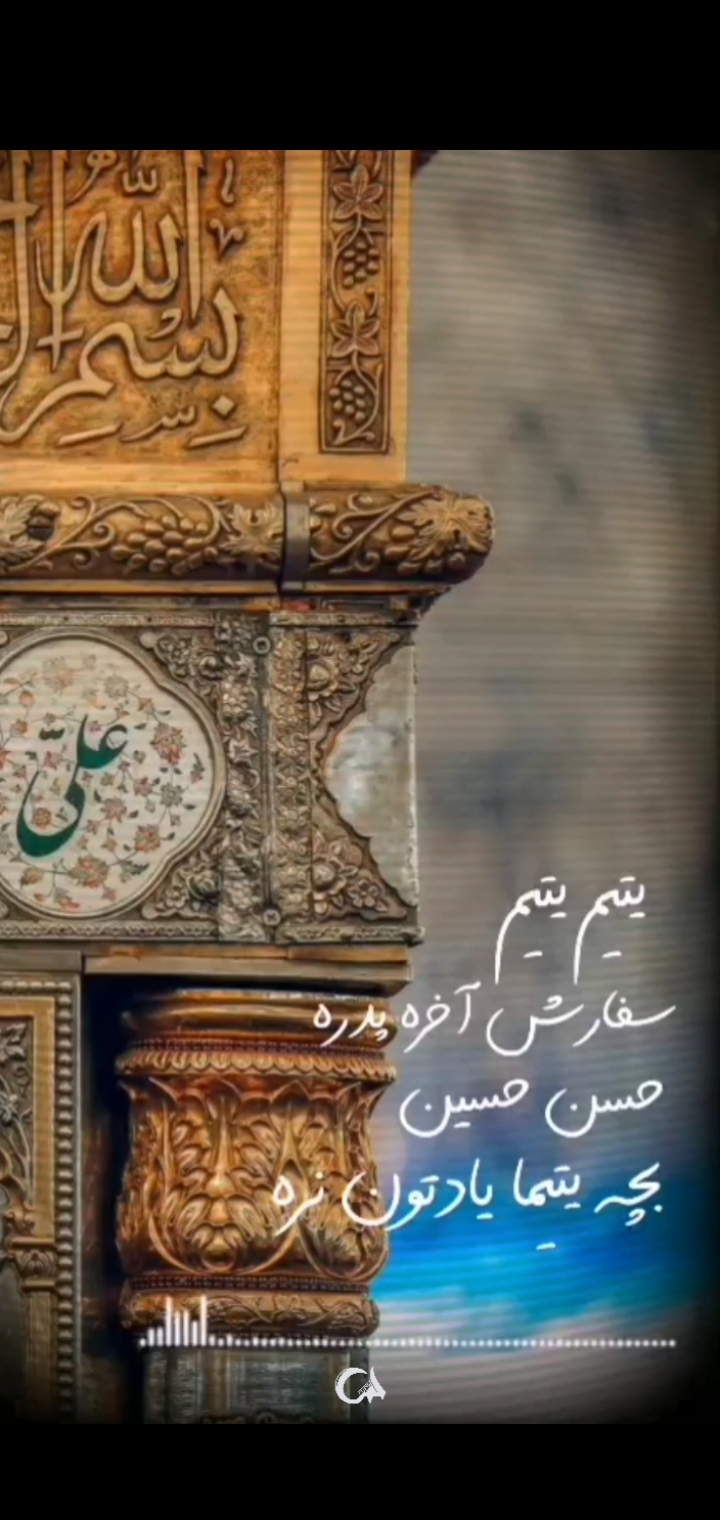 بِسْمِ اللّه
علیّ
یتیم یتیم
سفارش آخره پدره
حسن حسین
بچه یتیما یادتون نره